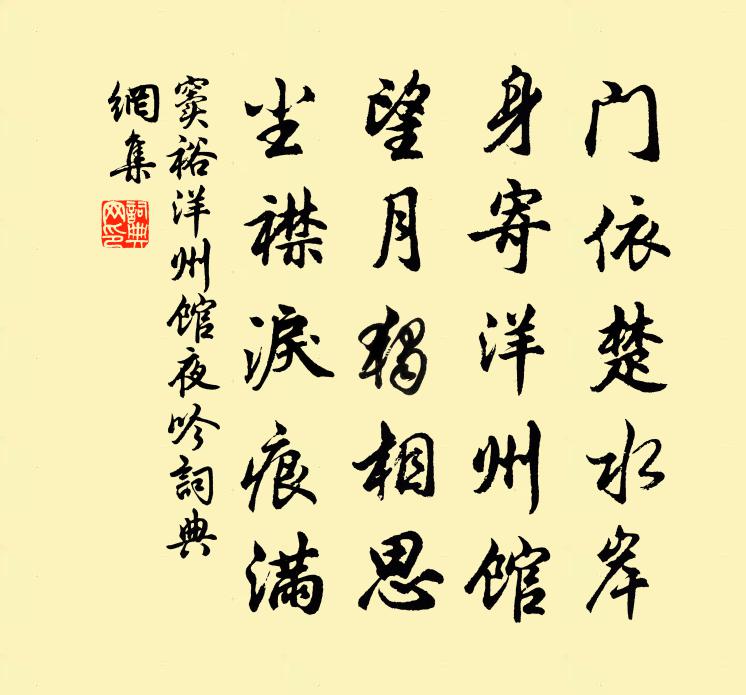 门依楚水岸
身寄洋州館
望月獨相思
尘襟淚痕满
窦裕洋州館夜吟詞典
網集
詞典
网印